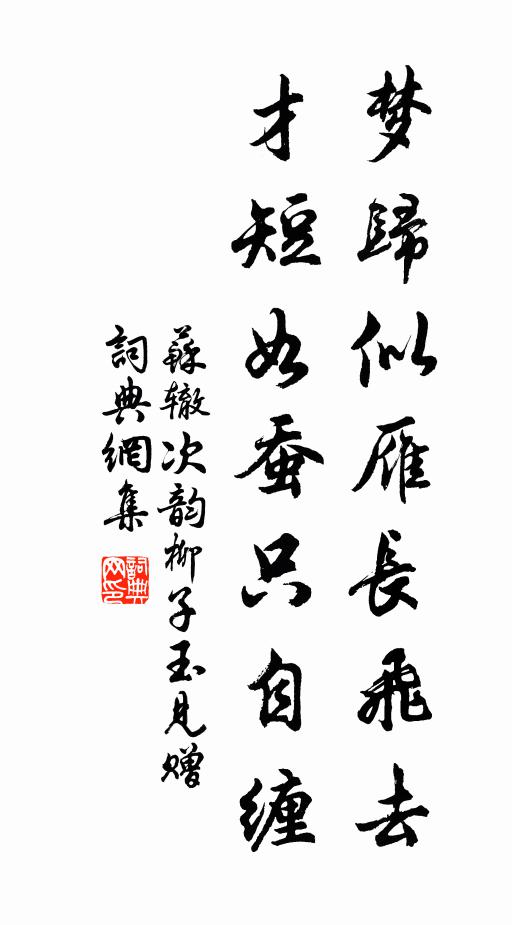 梦歸似雁長飛去
才短如蚕只自缠
蘇辙次韵柳子玉見赠
詞典網集
詞典网印